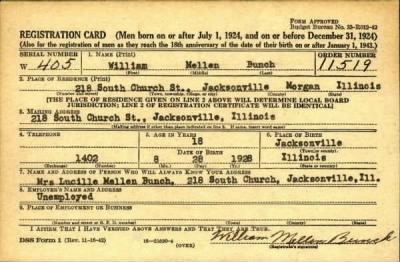 FORM APPROVED
Budget Bureau No. 33-R012-42
REGISTRATION CARD (Men born on or after July 1, 1924, and on or before December 31, 1924)
(Also for the registration of men as they reach the 18th anniversary of the date of their birth on or after January 1, 1943.)
SERIAL NUMBER 1. NAME (Print) ORDER NUMBER
W 405 William Mellen Bunch 11519
(First) (Middle) (Last)
2. PLACE OF RESIDENCE (Print)
218 South Church St., Jacksonville Morgan Illinois
(Number and street) (Town, township, village, or city) (County) (State)
[THE PLACE OF RESIDENCE GIVEN ON LINE 2 ABOVE WILL DETERMINE LOCAL BOARD
JURISDICTION; LINE 2 OF REGISTRATION CERTIFICATE WILL BE IDENTICAL]
3. MAILING ADDRESS
218 South Church St., Jacksonville, Illinois
[Mailing address if other than place indicated on line 2. If same, insert word same]
4. TELEPHONE 5. AGE IN YEARS 6. PLACE OF BIRTH
18 Jacksonville
DATE OF BIRTH (Town or county)
1402 8 28 1928 Illinois
(Exchange) (Number) (Mo.) (Day) (Yr.) (State or country)
7. NAME AND ADDRESS OF PERSON WHO WILL ALWAYS KNOW YOUR ADDRESS
Mrs Lucille Mellen Bunch, 218 South Church, Jacksonville, Ill.
8. EMPLOYER'S NAME AND ADDRESS
Unemployed
9. PLACE OF EMPLOYMENT OR BUSINESS
(Number and street or R. F. D. number) (Town) (County) (State)
I AFFIRM THAT I HAVE VERIFIED ABOVE ANSWERS AND THAT THEY ARE TRUE.
DSS Form 1 (Rev. 11-16-42) (OVER) William Mellen Bunch
(Registrant's signature)